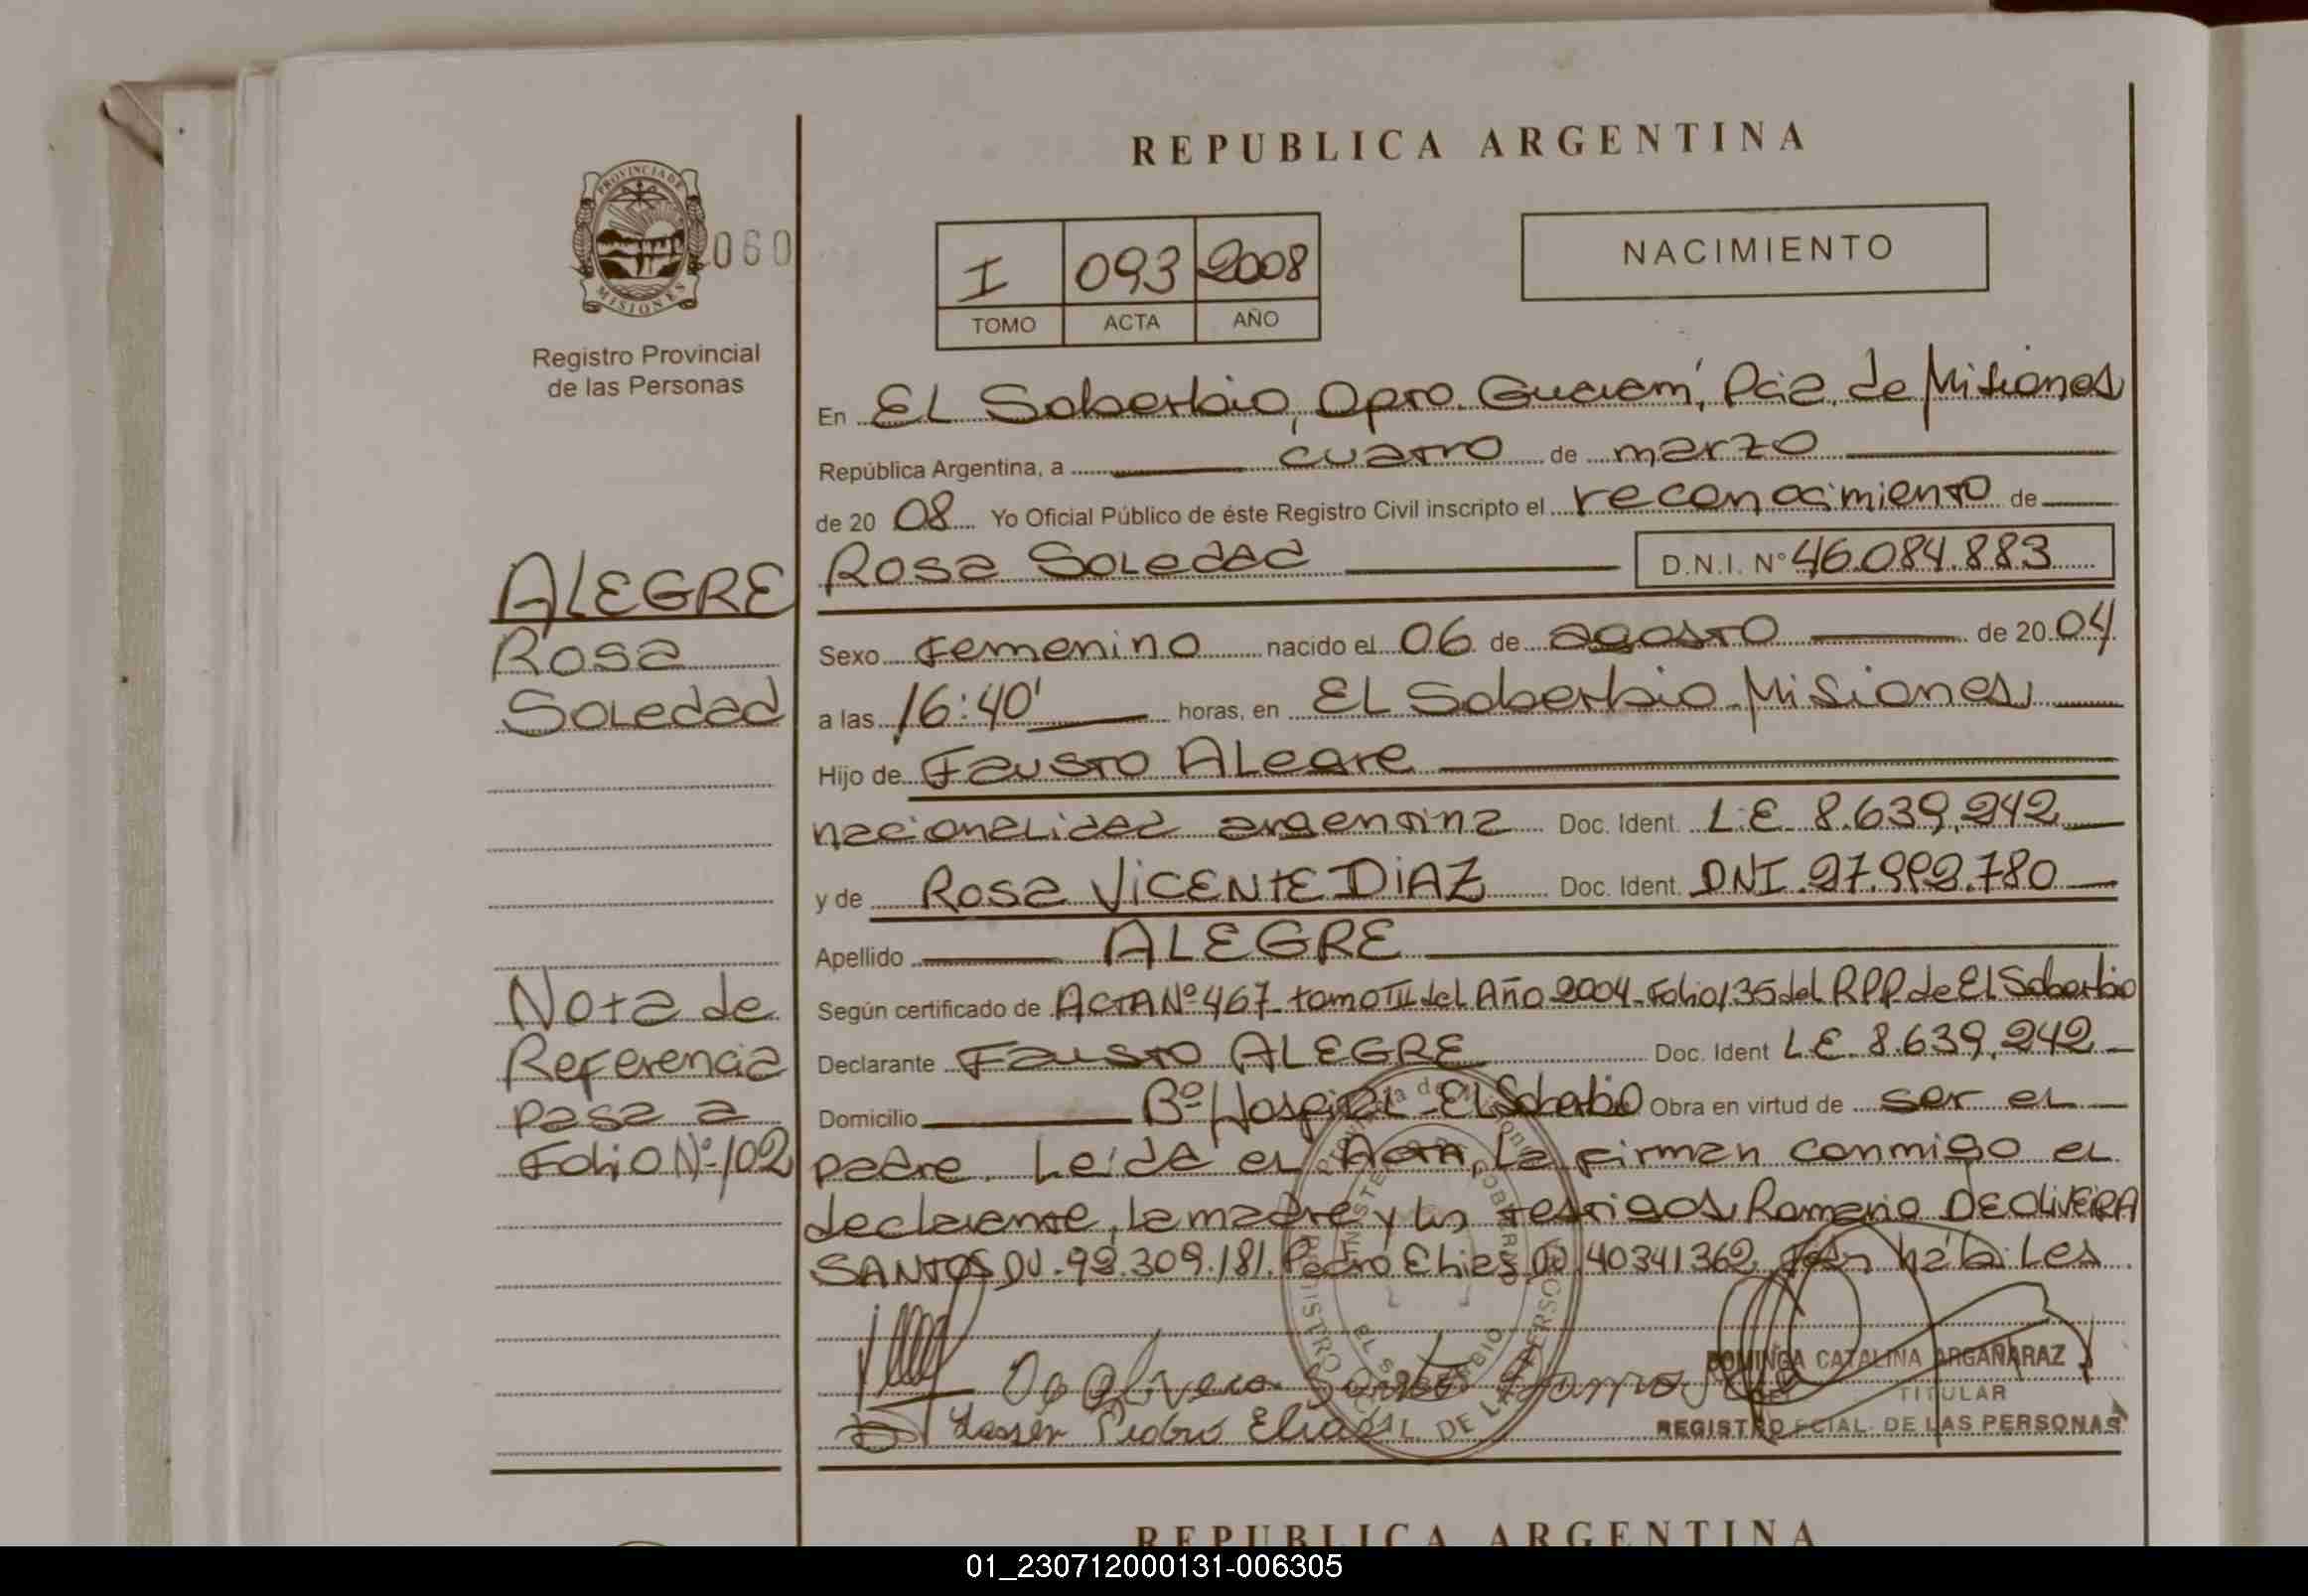 REPUBLICA ARGENTINA
PROVINCIA DE
MISIONES
060
Registro Provincial
de las Personas
I 093 2008
TOMO ACTA AÑO
NACIMIENTO
En EL Soberbio, Dpto. Guaraní, Pcia. de Misiones
República Argentina, a cuatro de marzo
de 2008 Yo Oficial Público de éste Registro Civil inscripto el reconocimiento de
Rosa Soledad D.N.I. N° 46.084.883
ALEGRE
Rosa
Soledad
Sexo Femenino nacido el 06 de agosto de 2004
a las 16:40' horas, en EL Soberbio Misiones
Hijo de Fausto ALegre
nacionalidad argentina Doc. Ident. L.E 8.639.242
y de Rosa VICENTE DIAZ Doc. Ident. DNI 27.992.780
Apellido ALEGRE
Según certificado de ACTA Nº 467 tomo III del Año 2004 Folio 135 del RPP de El Soberbio
Declarante Fausto ALEGRE Doc. Ident L.E 8.639.242
Domicilio Bº Hospital - El Soberbio Obra en virtud de ser el
padre. Leída el Acta, La firman conmigo el
declarante, la madre y los testigos Romario DE OLIVEIRA
SANTOS DU. 92.309.181. Pedro Elias DU 40341362 hábiles
Nota de
Referencia
pasa a
Folio Nº 102
Pedro Elias
DOMINGA CATALINA ARGAÑARAZ
TITULAR
REGISTRO PCIAL. DE LAS PERSONAS
REPUBLICA ARGENTINA
01_230712000131-006305